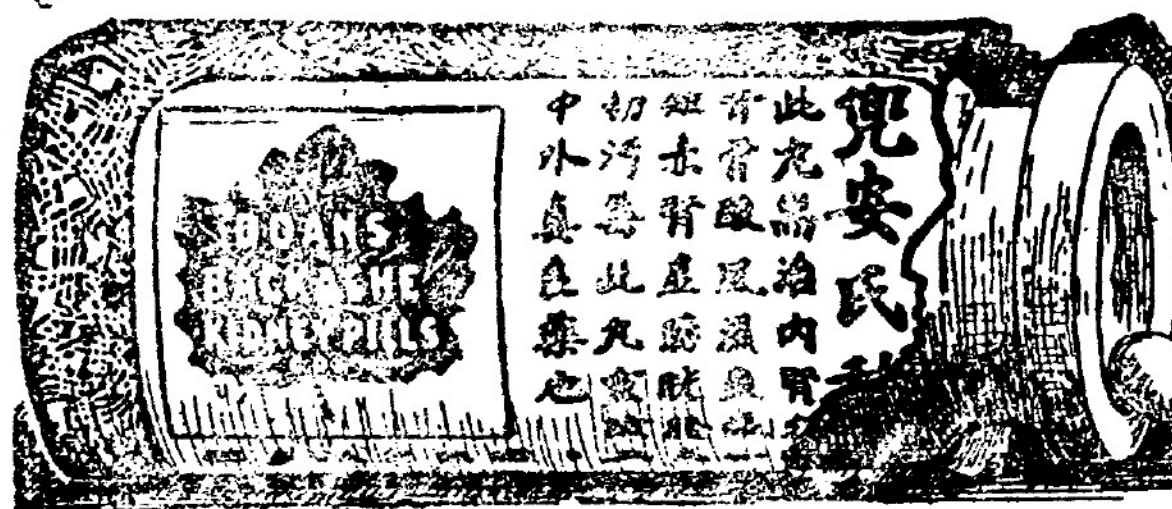 DOANS
BACKACHE
KIDNEY PILLS
兜安氏秘
此丸端治內腎
背骨酸風濕
短赤腎虛膀胱
初污此丸
中外真良藥也